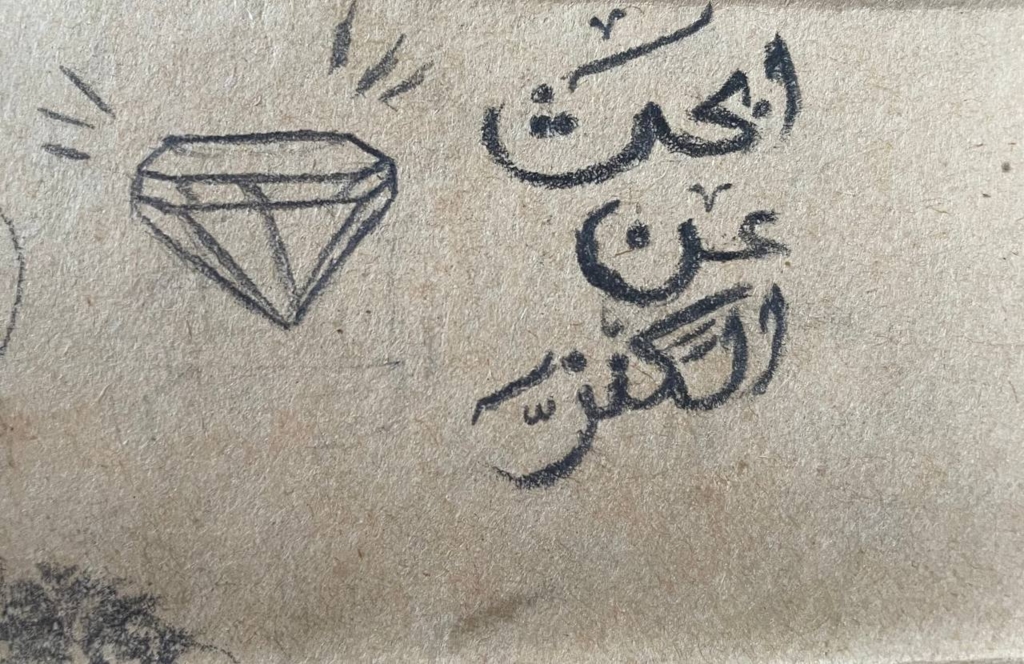 ابحث
عن
الكنز